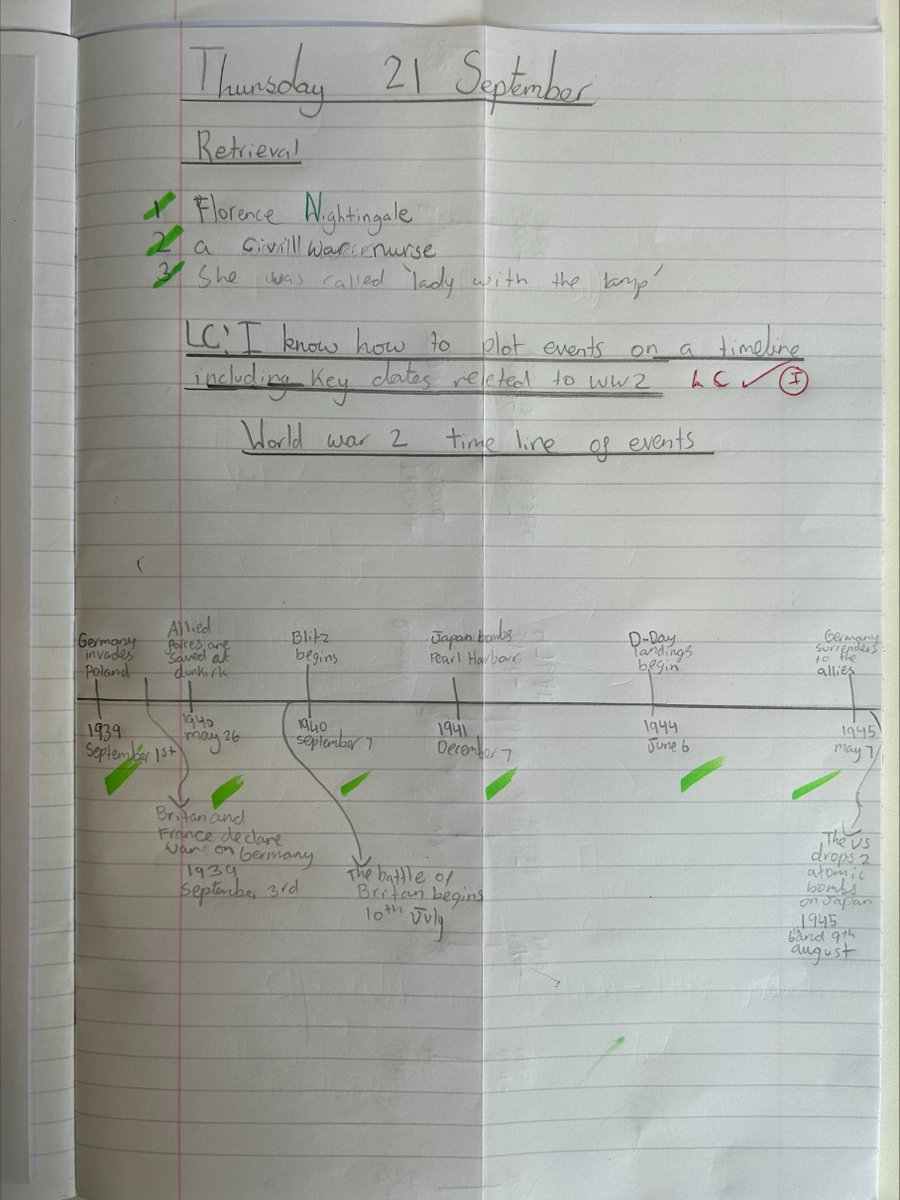 Thursday 21 September
Retrieval
1 Florence Nightingale
2 a Civill war nurse
3 She was called 'lady with the lamp'
LC: I know how to plot events on a timeline
including key dates releted to WW2 LC ✓ I
World war 2 time line of events
Germany
invades
Poland
Allied
forces are
saved at
dunkirk
Blitz
begins
Japan bombs
Pearl Harbour
D-Day
landings
begin
Germany
surrenders
to the
allies
1939
September 1st
1940
may 26
1940
september 7
1941
December 7
1944
June 6
1945
may 7
Britan and
France declare
war on Germany
1939
September 3rd
The battle of
Britan begins
10th July
The US
drops 2
atomic
bombs
on Japan
1945
6th and 9th
august